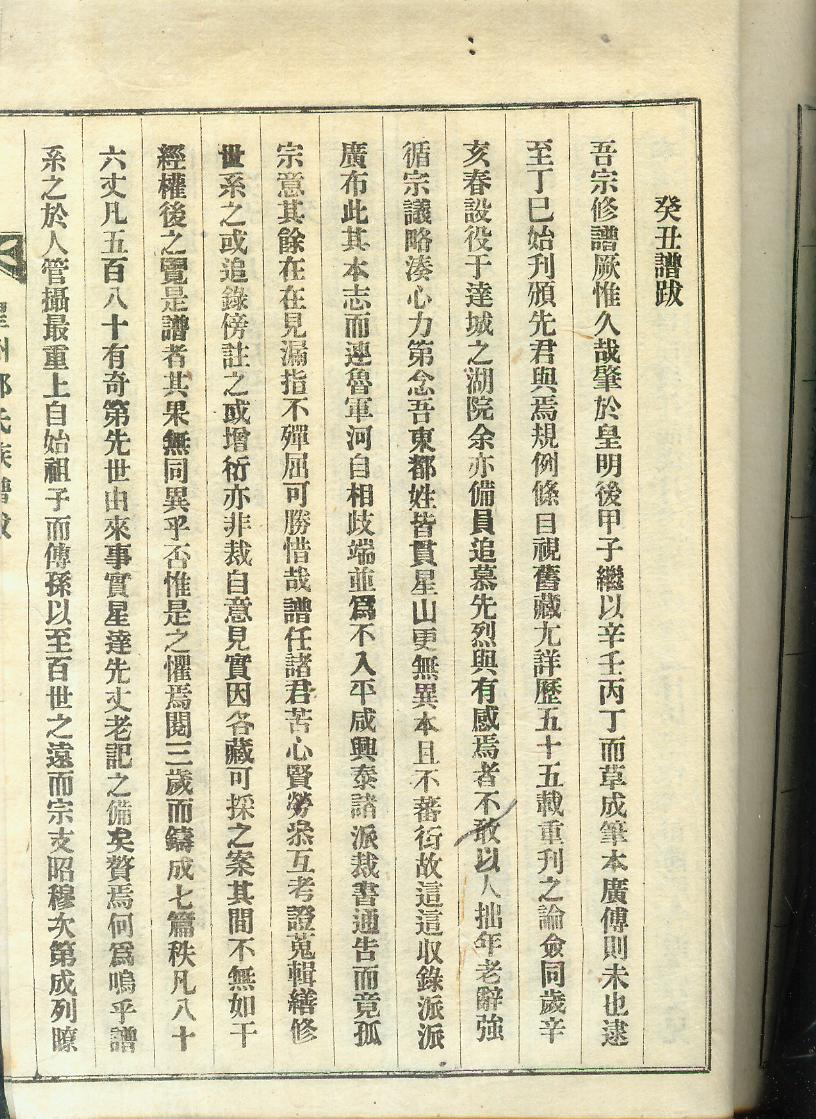 癸丑譜跋
吾宗修譜厥惟久哉肇於皇明後甲子繼以辛壬丙丁而草成筆本廣傅則未也逮
至丁巳始刋頒先君與焉規例條目視舊藏尢詳歷五十五載重刊之論僉同歲辛
亥春設役于達城之湖院余亦備員追慕先烈與有感焉者不敢以人拙年老辭強
循宗議略湊心力第念吾東都姓皆貫星山更無異本且不蕃衍故這這収錄派派
廣布此其本志而連魯軍河自相歧端並爲不入平咸興泰諸派裁書通告而竟孤
宗意其餘在在見漏指不殫屈可勝惜哉譜任諸君苦心賢勞叅互考證蒐輯繕修
世系之或追錄傍註之或增衍亦非裁自意見實因各藏可採之案其間不無如干
經權後之覽是譜者其果無同異乎否惟是之懼焉閱三歲而鑄成七篇秩凡八十
六丈凡五百八十有奇第先世由來事實星達先丈老記之備矣贅焉何爲嗚乎譜
系之於人管攝最重上自始祖子而傅孫以至百世之遠而宗支昭穆次第成列瞭
星州都氏族譜跋